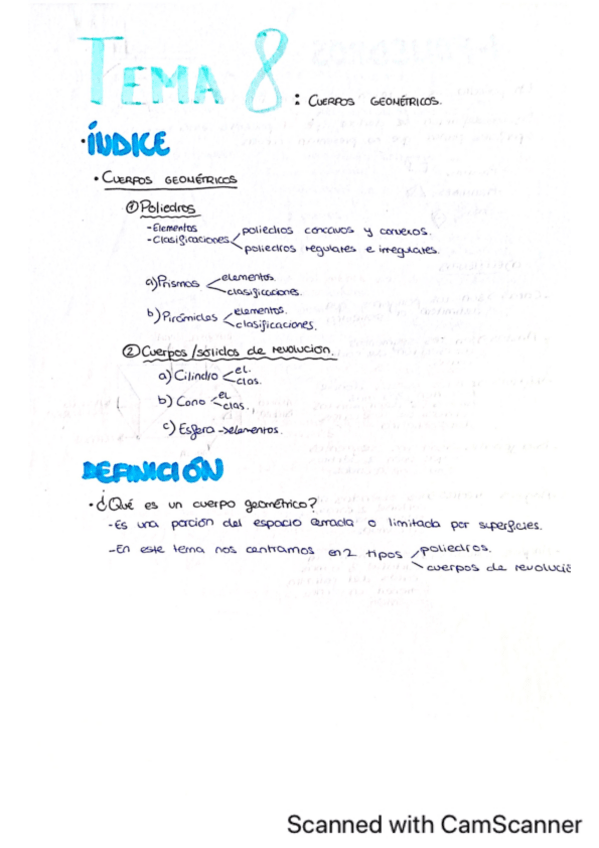 TEMA 8 : CUERPOS GEOMÉTRICOS.
·ÍNDICE
· CUERPOS GEOMÉTRICOS
① Poliedros
-Elementos
-Clasificaciones poliedros cóncavos y convexos.
poliedros regulares e irregulares.
a) Prismas elementos.
clasificaciones.
b) Pirámides elementos.
clasificaciones.
② Cuerpos/sólidos de revolución.
a) Cilindro el.
clas.
b) Cono el
clas.
c) Esfera → elementos.
DEFINICIÓN
· ¿Qué es un cuerpo geométrico?
-Es una porción del espacio cerrada o limitada por superficies.
-En este tema nos centramos en 2 tipos poliedros.
cuerpos de revolucić
Scanned with CamScanner